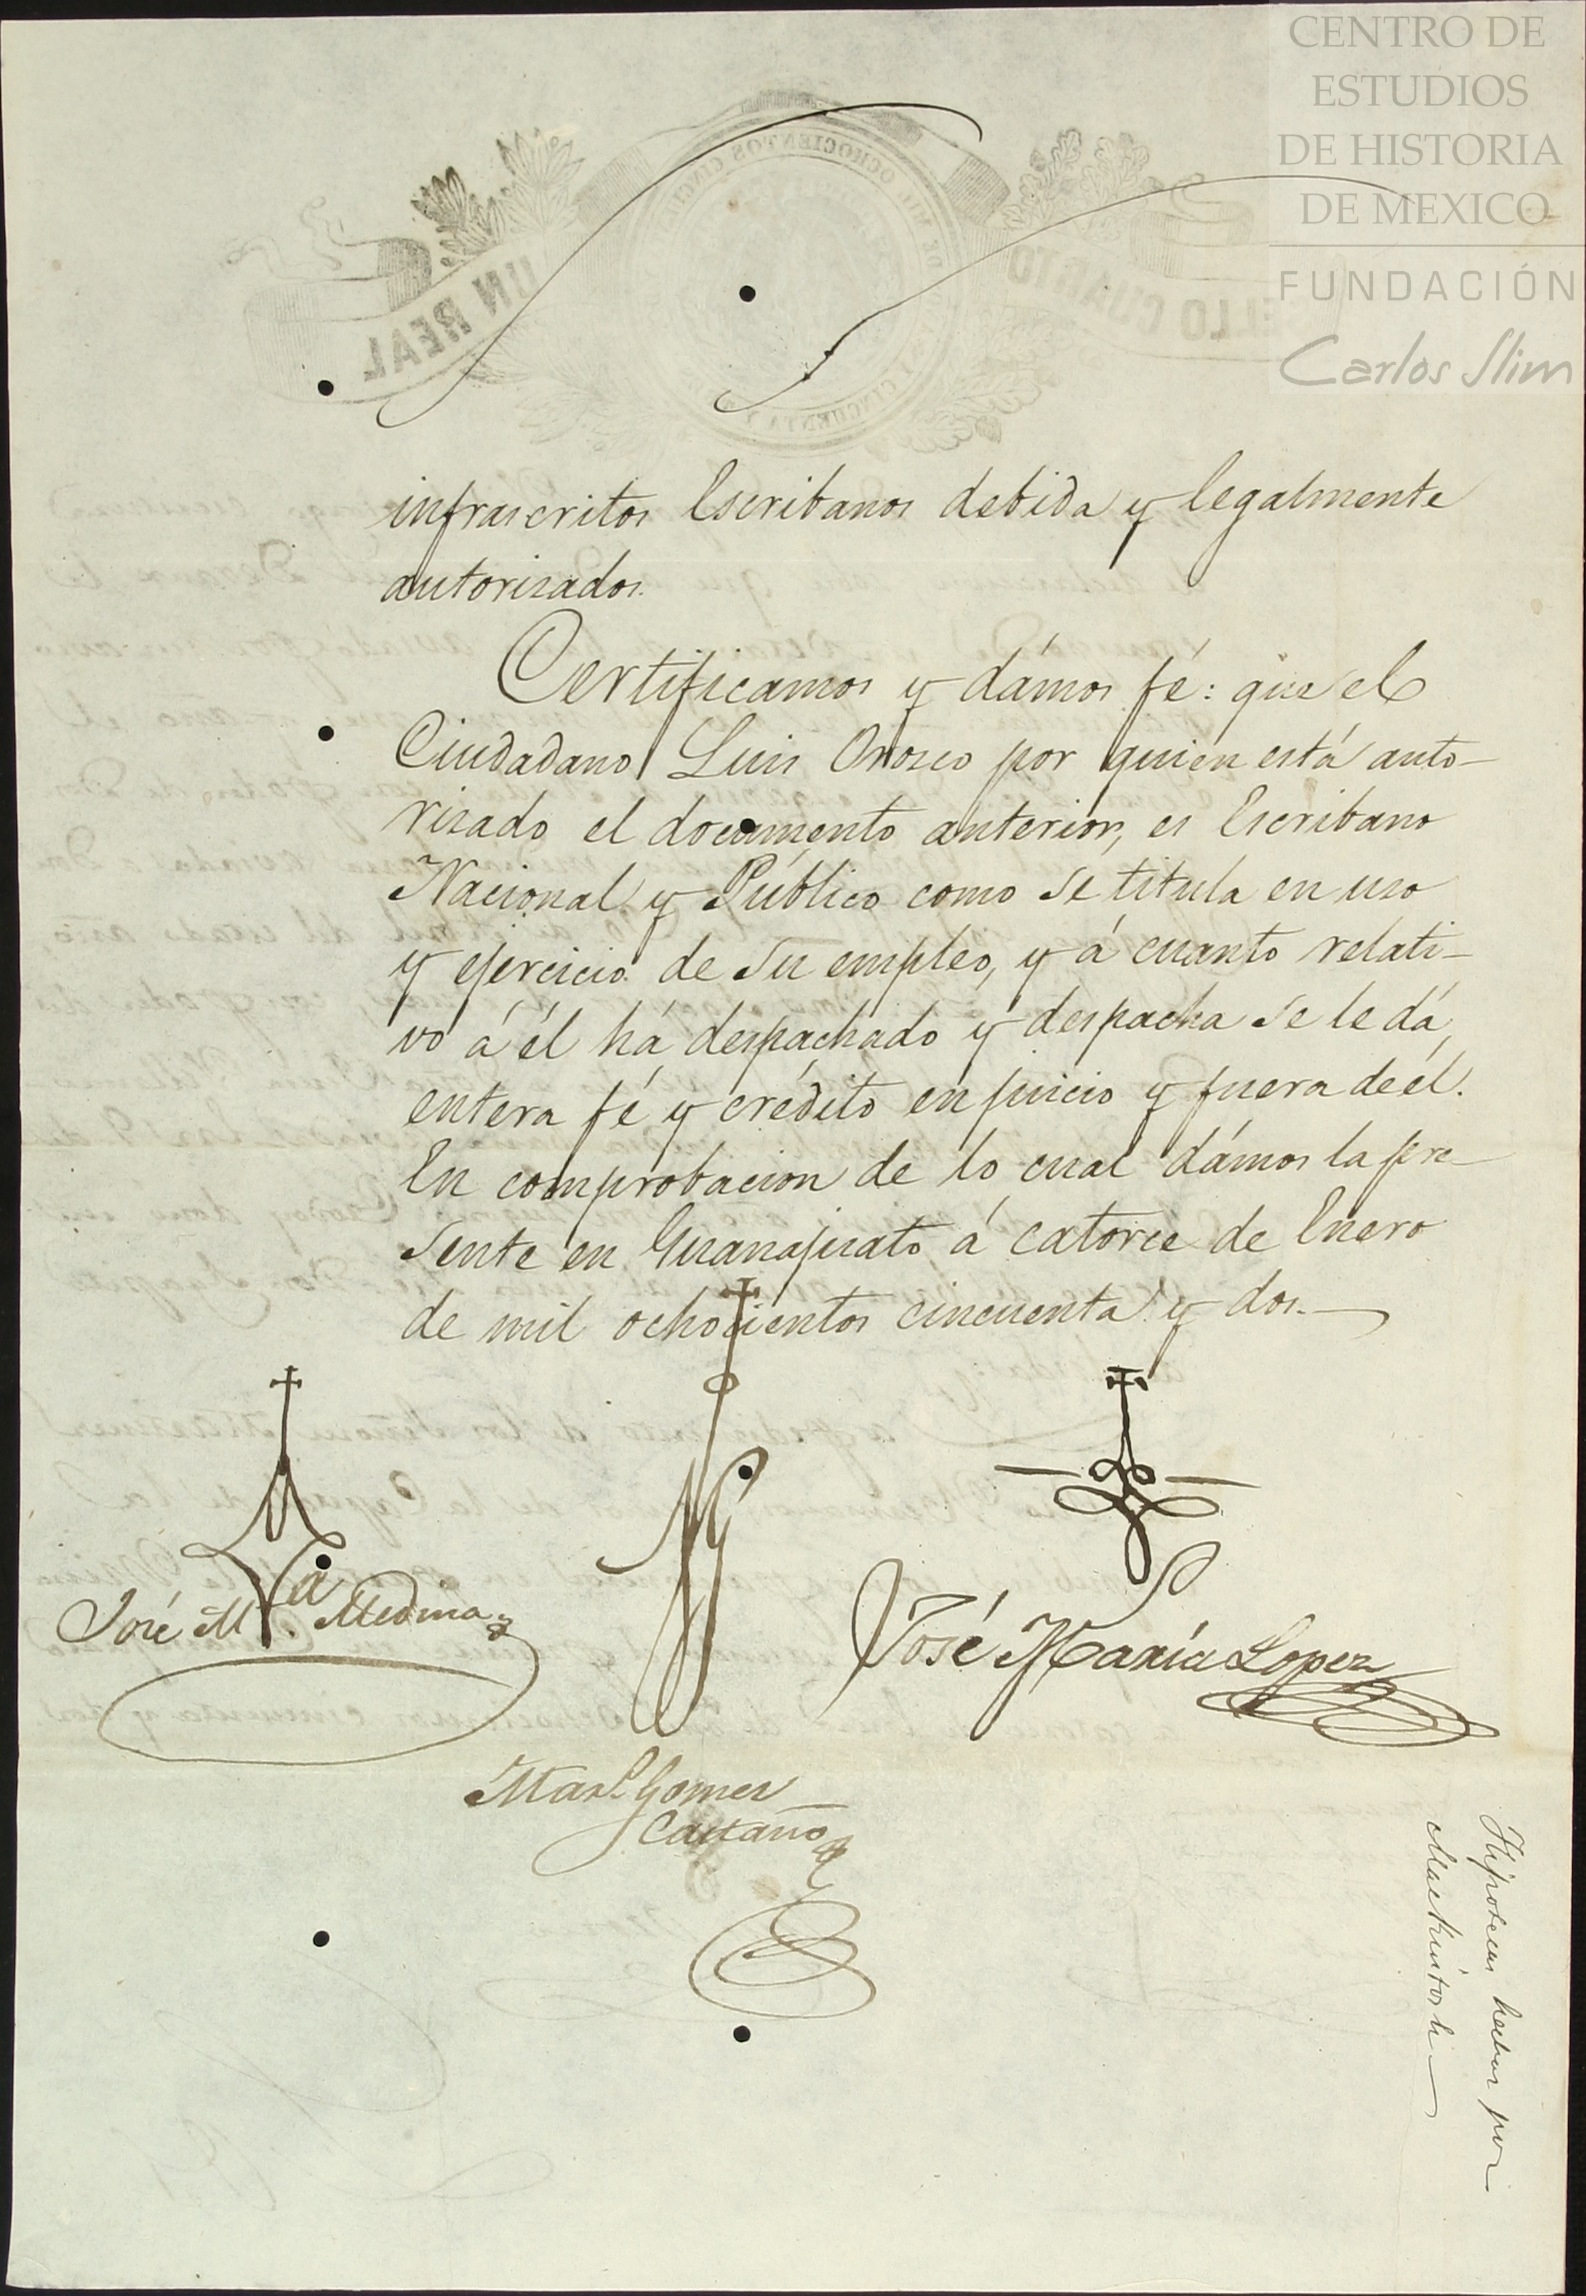 CENTRO DE
ESTUDIOS
DE HISTORIA
DE MEXICO
FUNDACIÓN
Carlos Slim
UN REAL
SELLO CUARTO
infrascritos Escribanos debida y legalmente
autorisados.
Certificamos y dámos fé: que el
Ciudadano Luis Orosco por quien está auto-
risado el documento anterior, es Escribano
Nacional y Público como se titula en uso
y ejercicio de su empleo, y á cuanto relati-
vo á él há despachado y despacha se le dá,
entera fé y crédito en juicio y fuera de él.
En comprobacion de lo cual dámos la pre-
sente en Guanajuato á catorce de Enero
de mil ochocientos cincuenta y dos.
José M.a Medina
José María Lopez
Man.l Gomez
Castaño
Hipotecas hechas por
Mackintosh